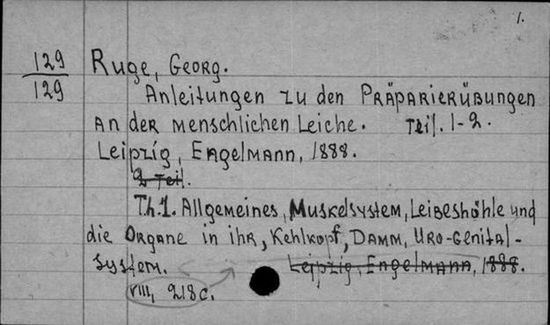 1.
129
129
Ruge, Georg.
Anleitungen zu den Präparierübungen
an der menschlichen Leiche. Teil. 1-2.
Leipzig, Engelmann, 1888.
2 Teil.
Th.1. Allgemeines, Muskelsystem, Leibeshöhle und
die Organe in ihr, Kehlkopf, Damm, Uro-Genital-
system. Leipzig, Engelmann, 1888.
VIII, 218 c.